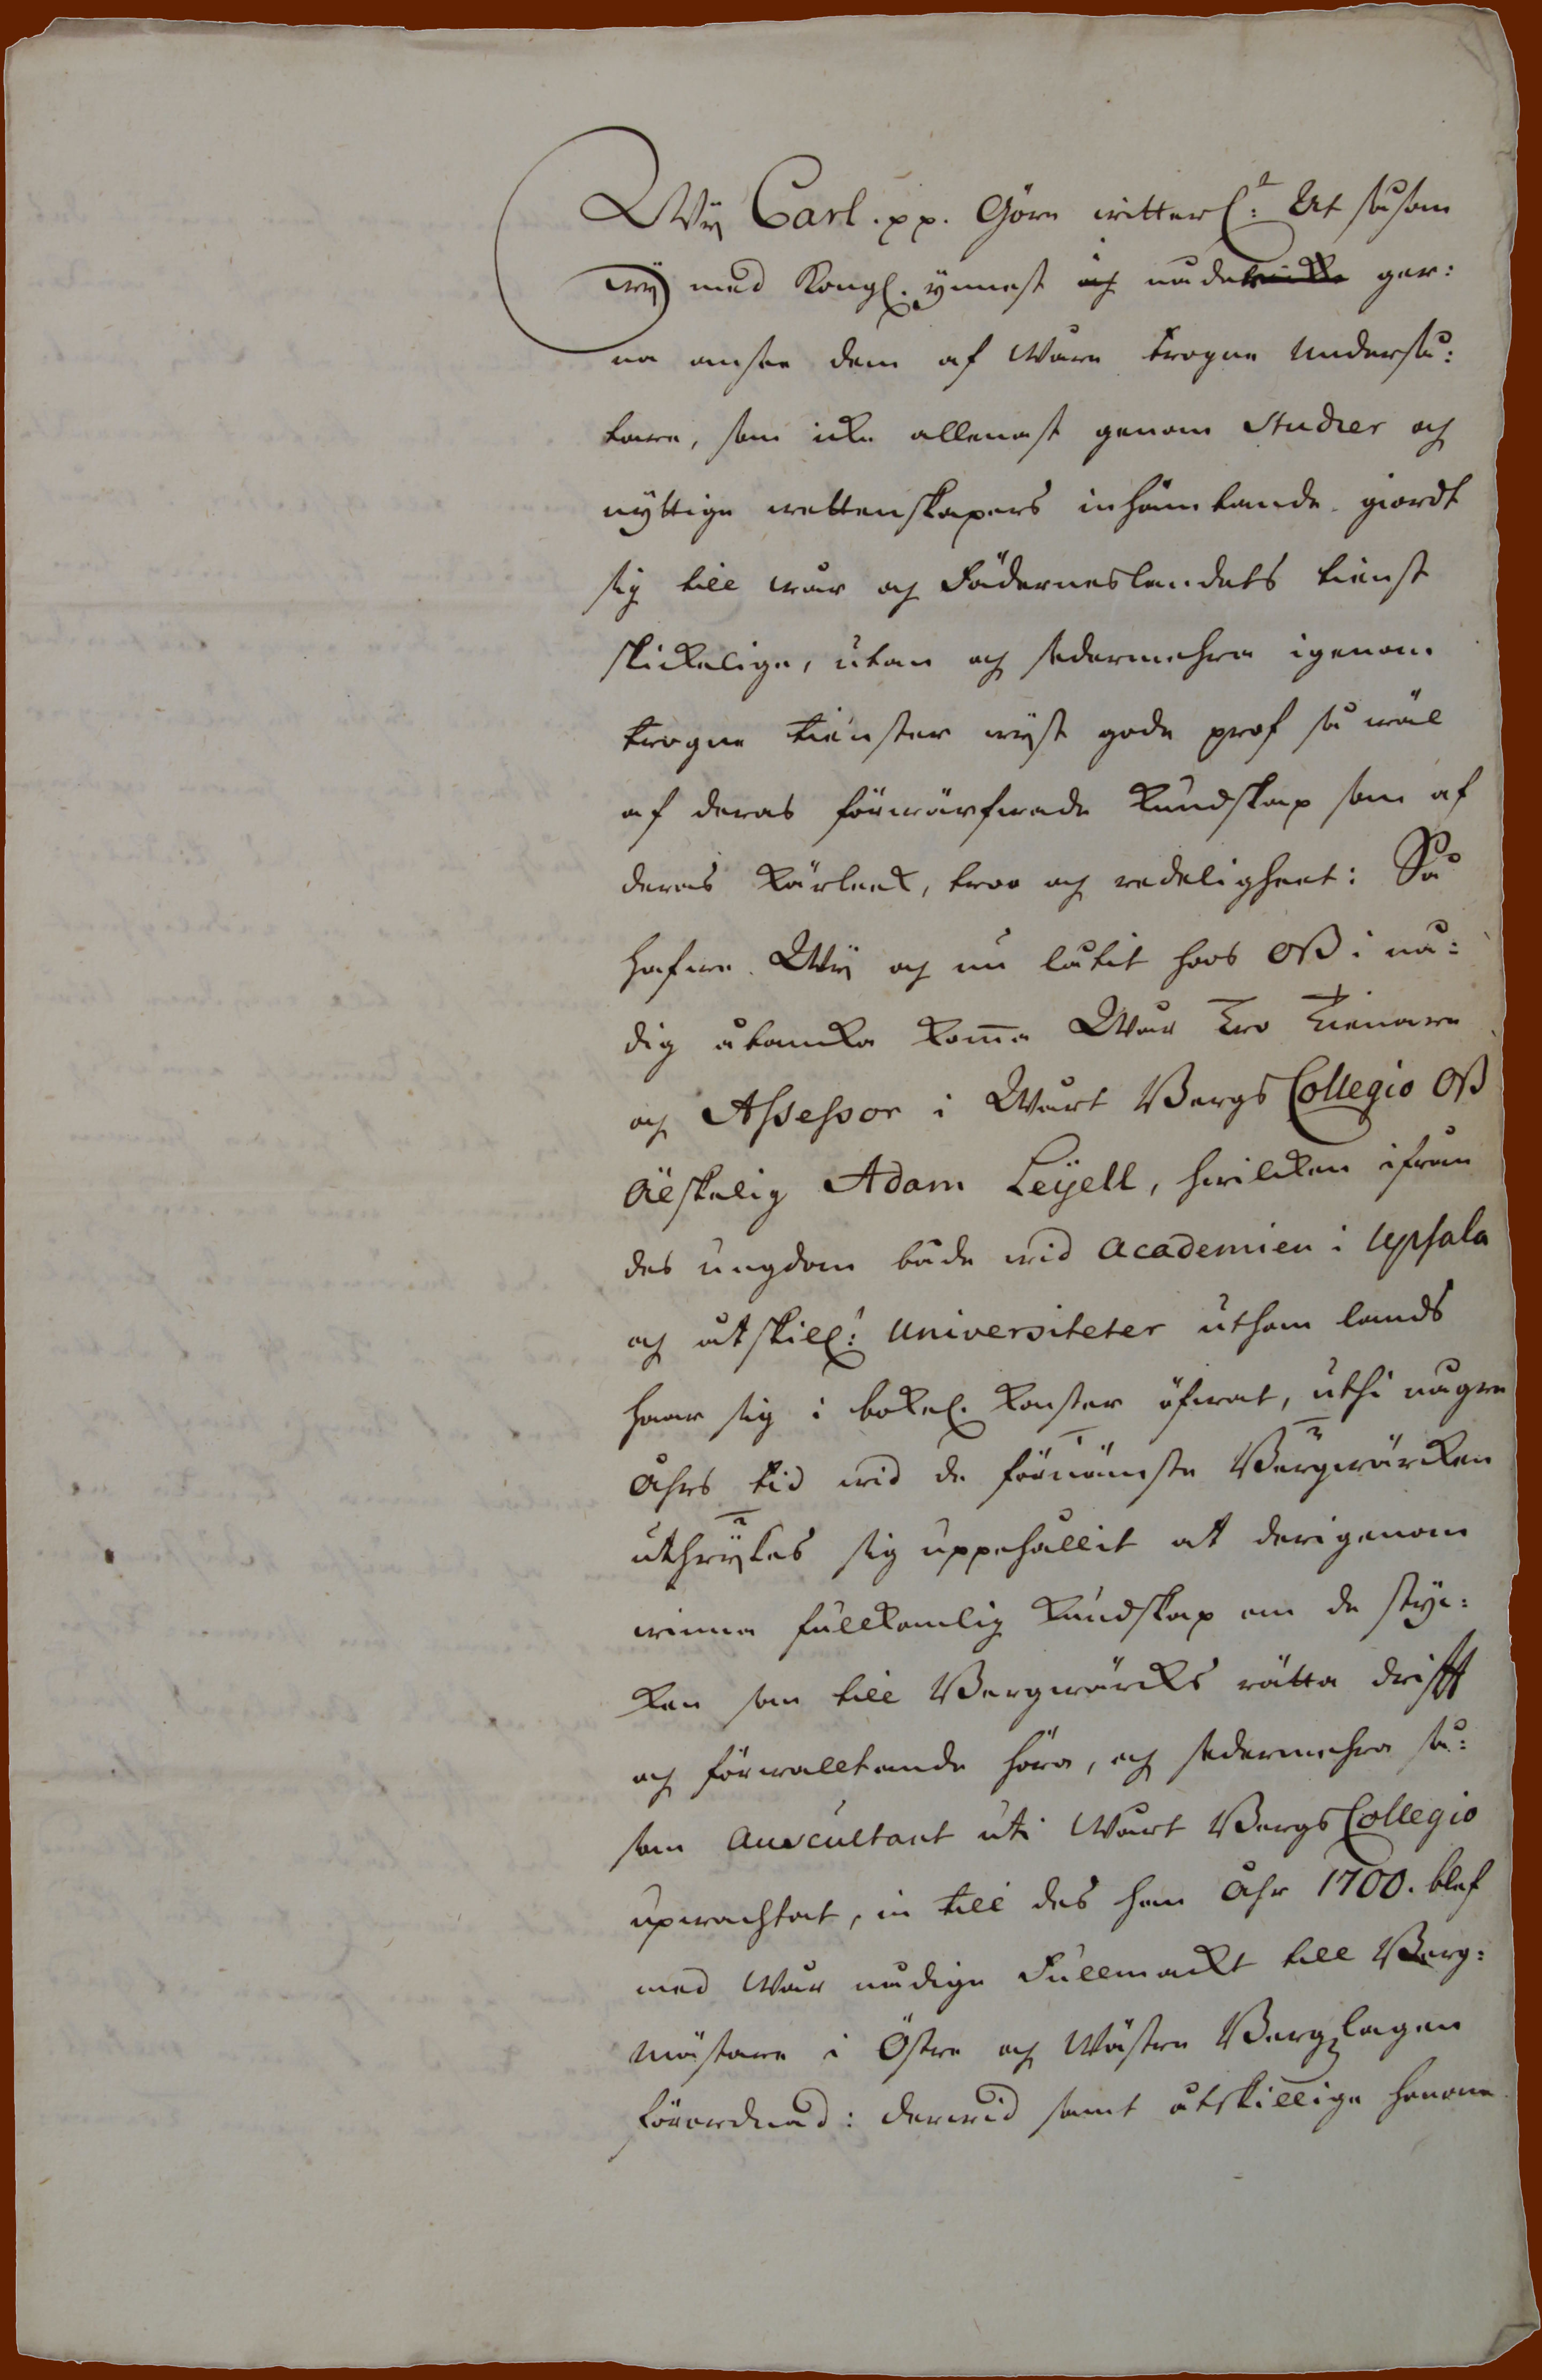 Wÿ Carl. pp. Göre witterl:t At såsom
wÿ med Kongl. ynnest och nåde ger:
na ansee dem af Wåre trogne Underså:
tare, som icke allenast genom Studier och
nyttige wettenskapers inhämtande giordt
sig till wår och Fäderneslandets tienst
skickelige, utan och sedermehra igenom
trogne tienster wyst gode prof så wäl
af deras förwärfwade Kundskap som af
deras Kärleek, troo och redeligheet: Så
hafwe Wÿ och nu låtit hoos Oß i nå:
dig åtancka komma Wår Tro Tienare
och Assessor i Wårt Bergs Collegio Oß
Älskelig Adam Leÿell, hwilcken ifrån
des ungdom både wid Academien i Upsala
och åtskill: Universiteter uthom lands
haar sig i bokel. Konster öfwat, uthi någre
åhrs tid wid de förnämste Bergwärcken
uthrÿkes sig uppehållit at derigenom
winna fullkomlig Kundskap om de styc:
ken som till Bergwärcks rätta drifft
och förwalltande höra, och sedermehra så:
som Auscultant uti Wårt Bergs Collegio
upwachtat, in till des han åhr 1700. blef
med Wår nådige Fullmackt till Berg:
mästare i Östre och Wästre Bergzlagen
förordnad: derwid samt åtskillige honom